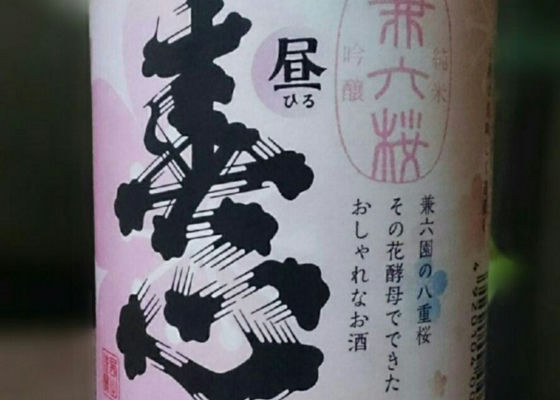 兼六桜
純米
吟醸
昼
ひる
春心
兼六園の八重桜
その花酵母でできた
おしゃれなお酒